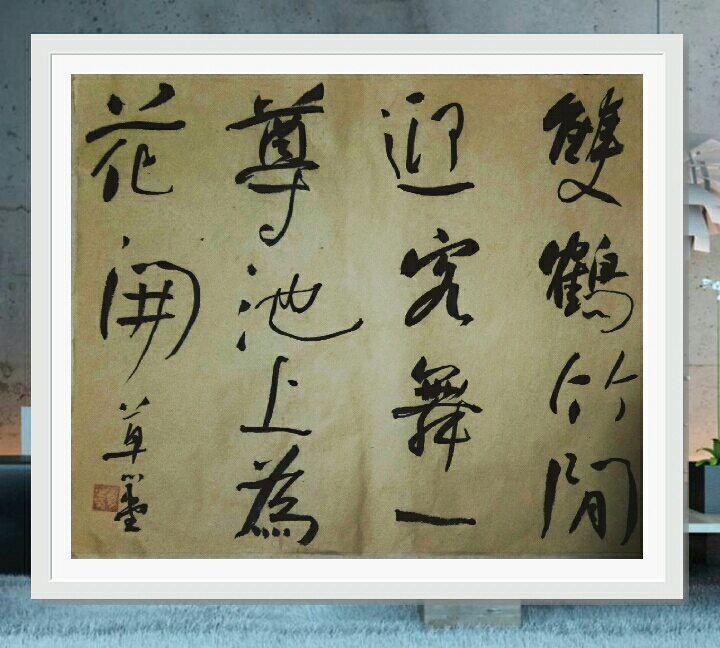 雙鶴竹閒
迎客舞一
尊池上為
花開 草